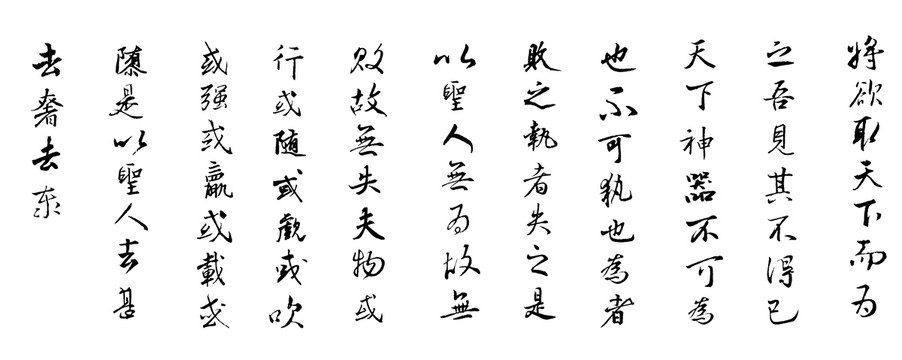 將欲取天下而为
之吾見其不得已
天下神器不可為
也不可執也為者
敗之執者失之是
以聖人無为故無
敗故無失夫物或
行或随或觀或吹
或强或羸或載或
隳是以聖人去甚
去奢去泰